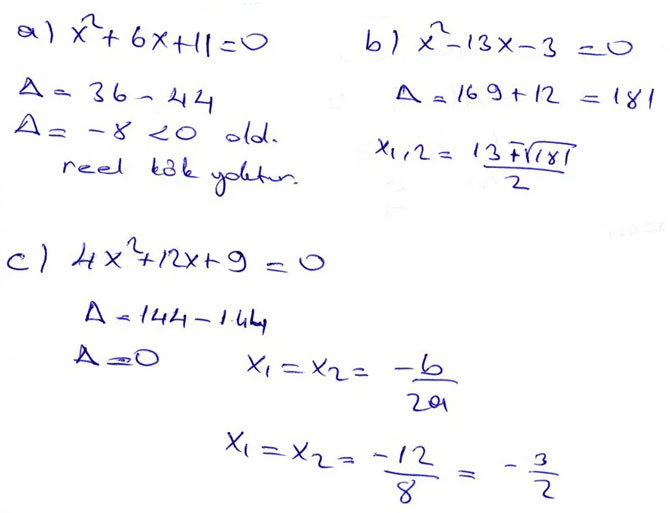 a) x²+6x+11=0
Δ = 36-44
Δ = -8 <0 old.
reel kök yoktur.
b) x²-13x-3 =0
Δ = 169+12 = 181
x₁,₂ = (13∓√181)/2
c) 4x²+12x+9 = 0
Δ = 144-144
Δ = 0
x₁ = x₂ = -b/2a
x₁ = x₂ = -12/8 = -3/2